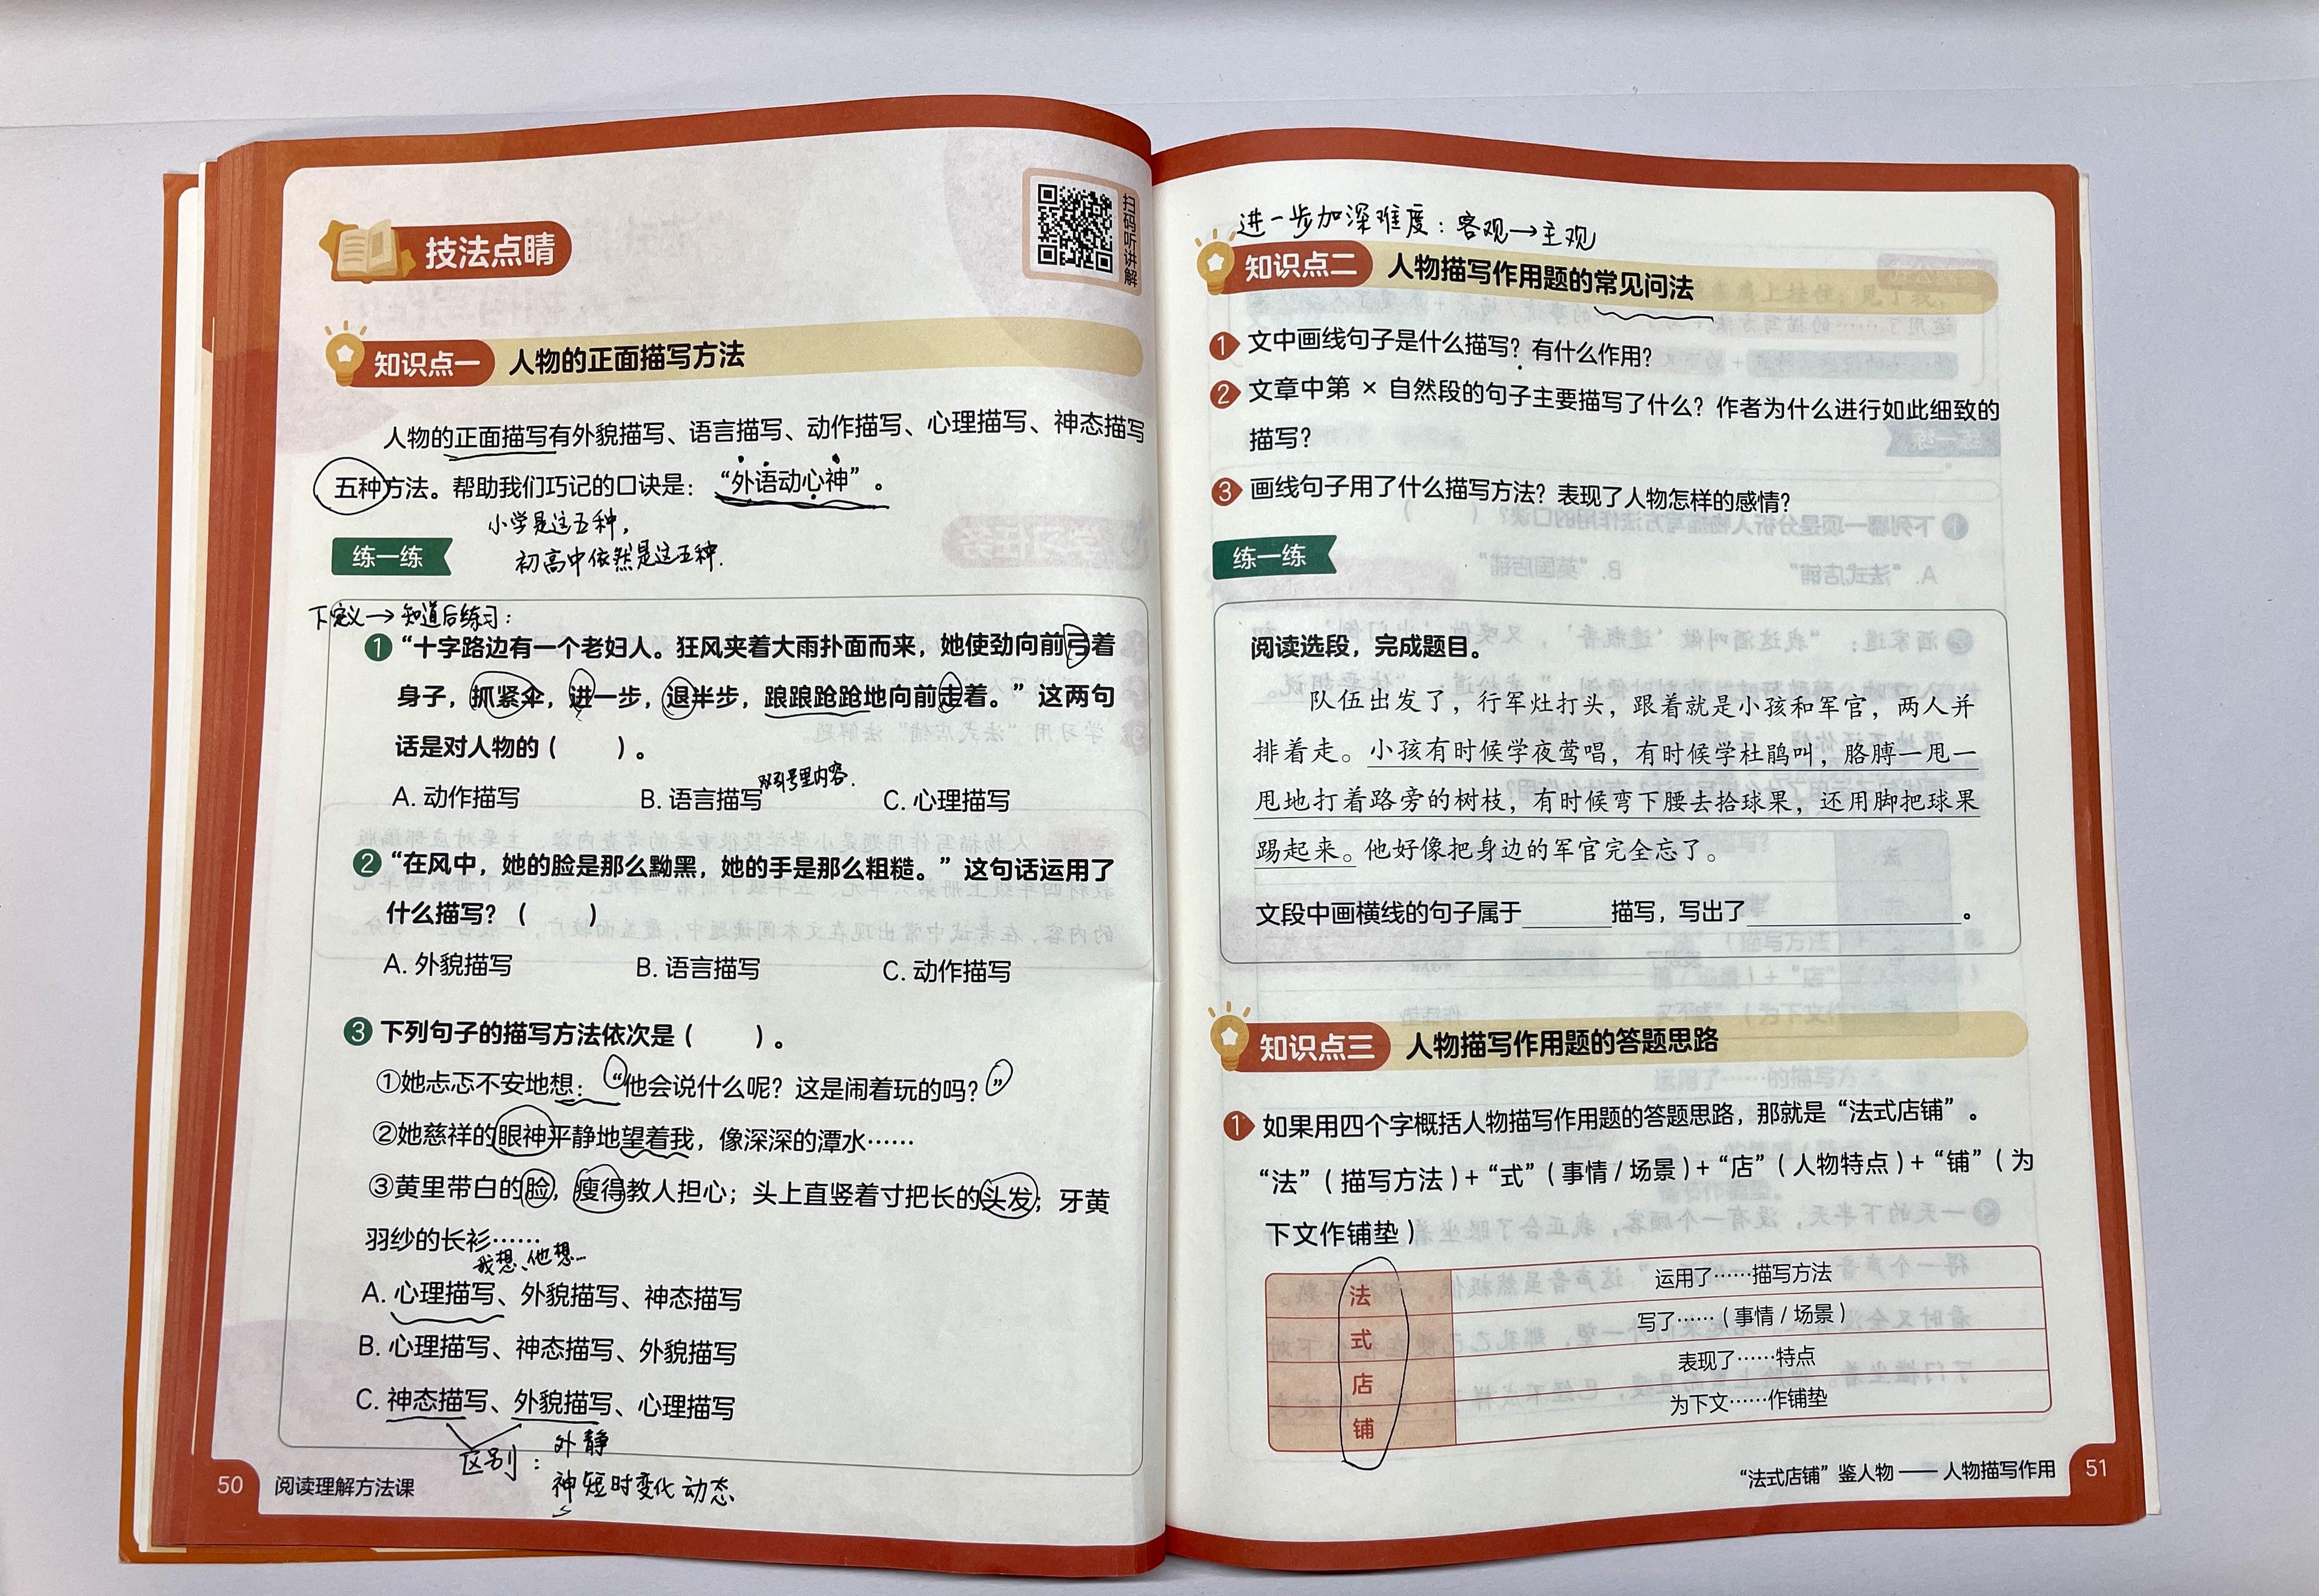 扫码听讲解
技法点睛
知识点一 人物的正面描写方法
人物的正面描写有外貌描写、语言描写、动作描写、心理描写、神态描写
五种方法。帮助我们巧记的口诀是：“外语动心神”。
小学是这五种，
初高中依然是这五种.
练一练
下定义→知道后练习：
1 “十字路边有一个老妇人。狂风夹着大雨扑面而来，她使劲向前弓着
身子，抓紧伞，进一步，退半步，踉踉跄跄地向前走着。”这两句
话是对人物的（ ）。
双引号里内容.
A. 动作描写 B. 语言描写 C. 心理描写
2 “在风中，她的脸是那么黝黑，她的手是那么粗糙。”这句话运用了
什么描写？（ ）
A. 外貌描写 B. 语言描写 C. 动作描写
3 下列句子的描写方法依次是（ ）。
①她忐忑不安地想：“他会说什么呢？这是闹着玩的吗？”
②她慈祥的眼神平静地望着我，像深深的潭水……
③黄里带白的脸，瘦得教人担心；头上直竖着寸把长的头发；牙黄
羽纱的长衫……
我想、他想...
A. 心理描写、外貌描写、神态描写
B. 心理描写、神态描写、外貌描写
C. 神态描写、外貌描写、心理描写
区别：外静
神短时变化动态
50 阅读理解方法课
进一步加深难度：客观→主观
知识点二 人物描写作用题的常见问法
1 文中画线句子是什么描写？有什么作用？
2 文章中第 × 自然段的句子主要描写了什么？作者为什么进行如此细致的
描写？
3 画线句子用了什么描写方法？表现了人物怎样的感情？
练一练
阅读选段，完成题目。
队伍出发了，行军灶打头，跟着就是小孩和军官，两人并
排着走。小孩有时候学夜莺唱，有时候学杜鹃叫，胳膊一甩一
甩地打着路旁的树枝，有时候弯下腰去拾球果，还用脚把球果
踢起来。他好像把身边的军官完全忘了。
文段中画横线的句子属于______描写，写出了______________。
知识点三 人物描写作用题的答题思路
1 如果用四个字概括人物描写作用题的答题思路，那就是“法式店铺”。
“法”（描写方法）+“式”（事情 / 场景）+“店”（人物特点）+“铺”（为
下文作铺垫）
法 运用了……描写方法
式 写了……（事情 / 场景）
店 表现了……特点
铺 为下文……作铺垫
“法式店铺”鉴人物——人物描写作用 51